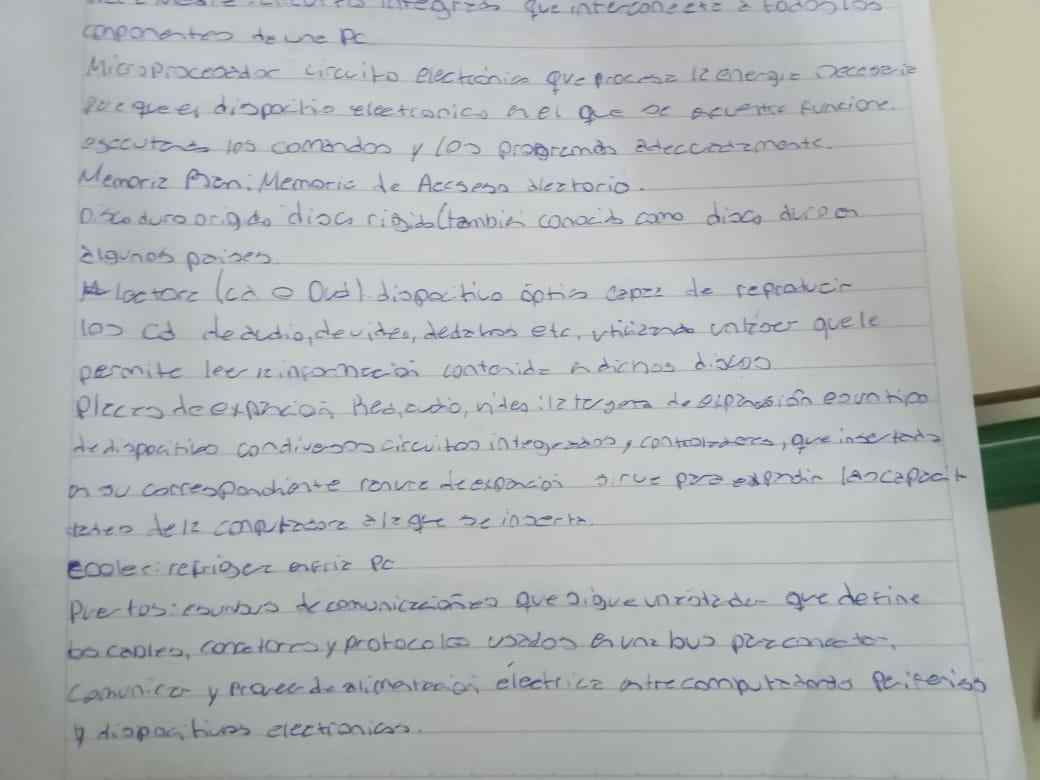 circuitos integrados que interconecta a todos los
componentes de une PC
Microprocesador circuito electrónico que procesa la energia necesaria
para que el dispocitio electronico en el que se encuentre funcione.
esecutando los comandos y los programas adeccadamente.
Memoria Ram: Memoria de Accseso aleatorio.
Disco duro o rigido disco rigido (tambien conocido como disco duro en
algunos paises
lectora (cd o Dvd) dispocitivo óptico capaz de reproducir
los cd de audio, de video, de datos etc, utilizando un laser que le
permite leer la información contenida n dichos discos
Placas de expancion, Red, audio, video: la targeta de expansión es un tipo
de dispocitivo con diversos circuitos integrados, y controladores, que insertada
en su correspondiente ranura de expancion sirve para expandir las capacit
dades de la conputadora a la que se inserta.
cooler: refrigera enfria PC
Puertos: es un bus de comunicaciones que sigue un que define
los cables, conectores y protocolos usados en une bus para conectar,
Comunicar y provee de alimentacion electrica entre computadoras perifericos
y dispocitivos electronicos.